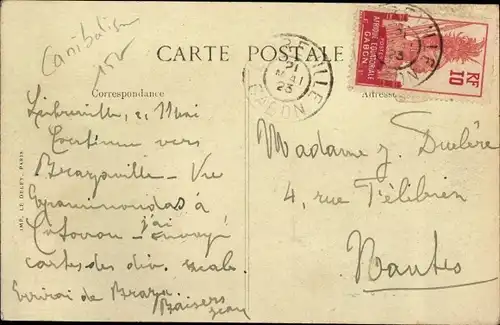 Canibalism
15r
CARTE POSTALE
Correspondance
Adresse
LIBREVILLE
21
MAI
23
GABON
AFRIQUE ÉQUATORIALE
GABON
POSTES
RF
10
Libreville, 21 Mai
Continue vers
Brazzaville - Vu
Epaminondas à
Cotonou - j'ai envoyé
cartes des div. escales.
Ecrirai de Brazza.
Baisers
Jean
Madame J.
4, rue Félibien
Nantes
IMP. LE DELEY, PARIS